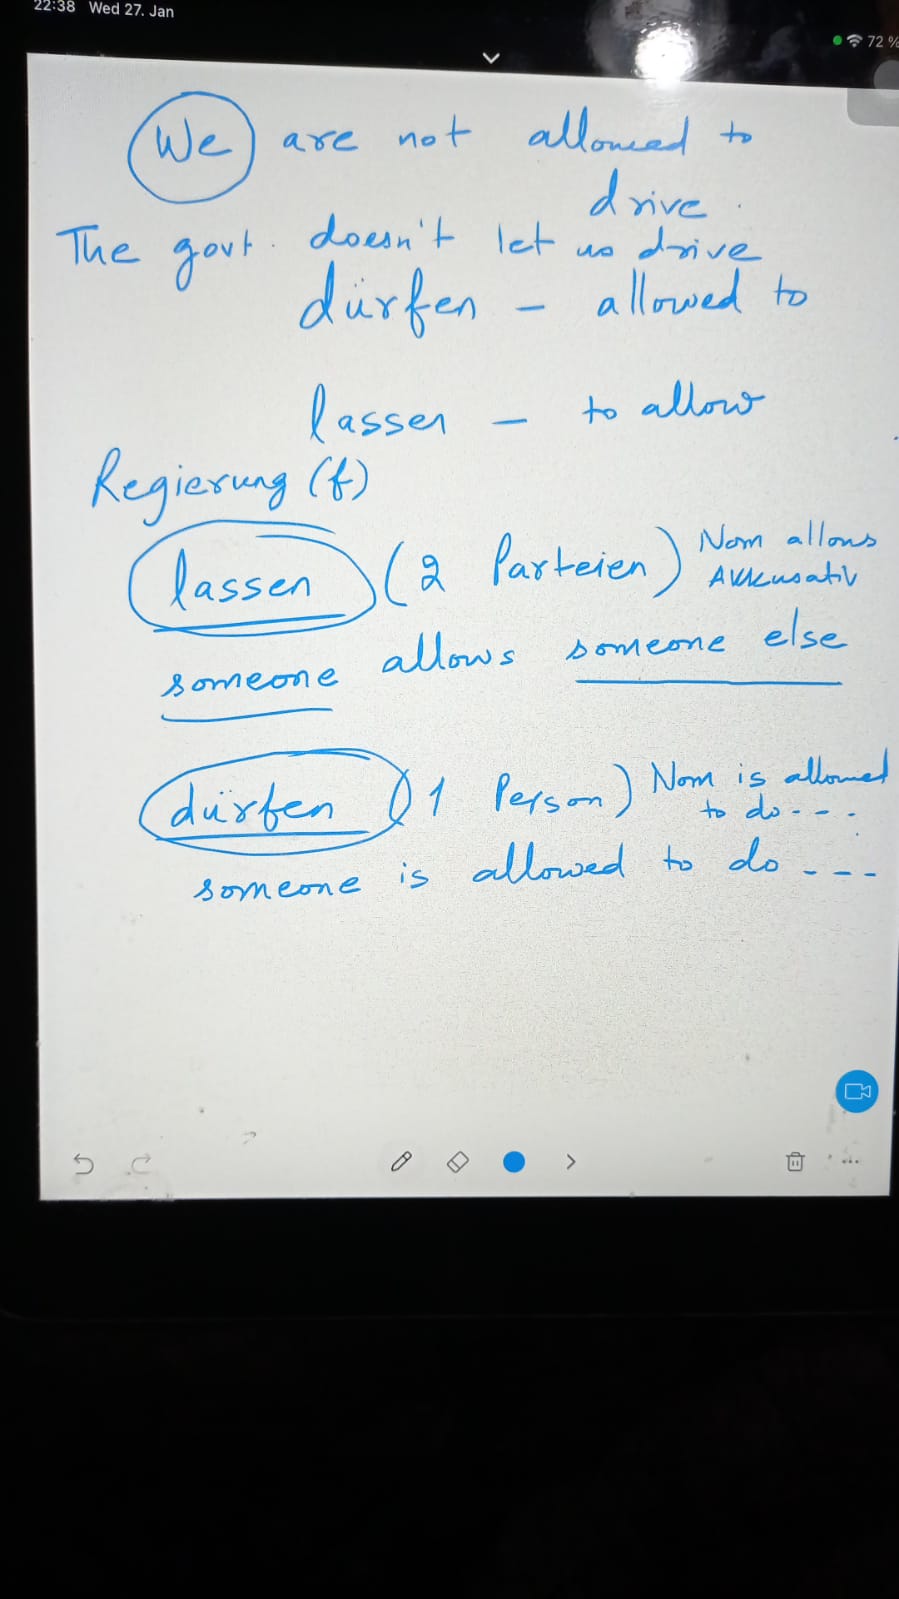 22:38 Wed 27. Jan
72 %
We are not allowed to
drive.
The govt. doesn't let us drive
dürfen - allowed to
lassen - to allow
Regierung (f)
lassen (2 Parteien) Nom allows
Akkusativ
someone allows someone else
dürfen (1 Person) Nom is allowed
to do ---.
someone is allowed to do ---